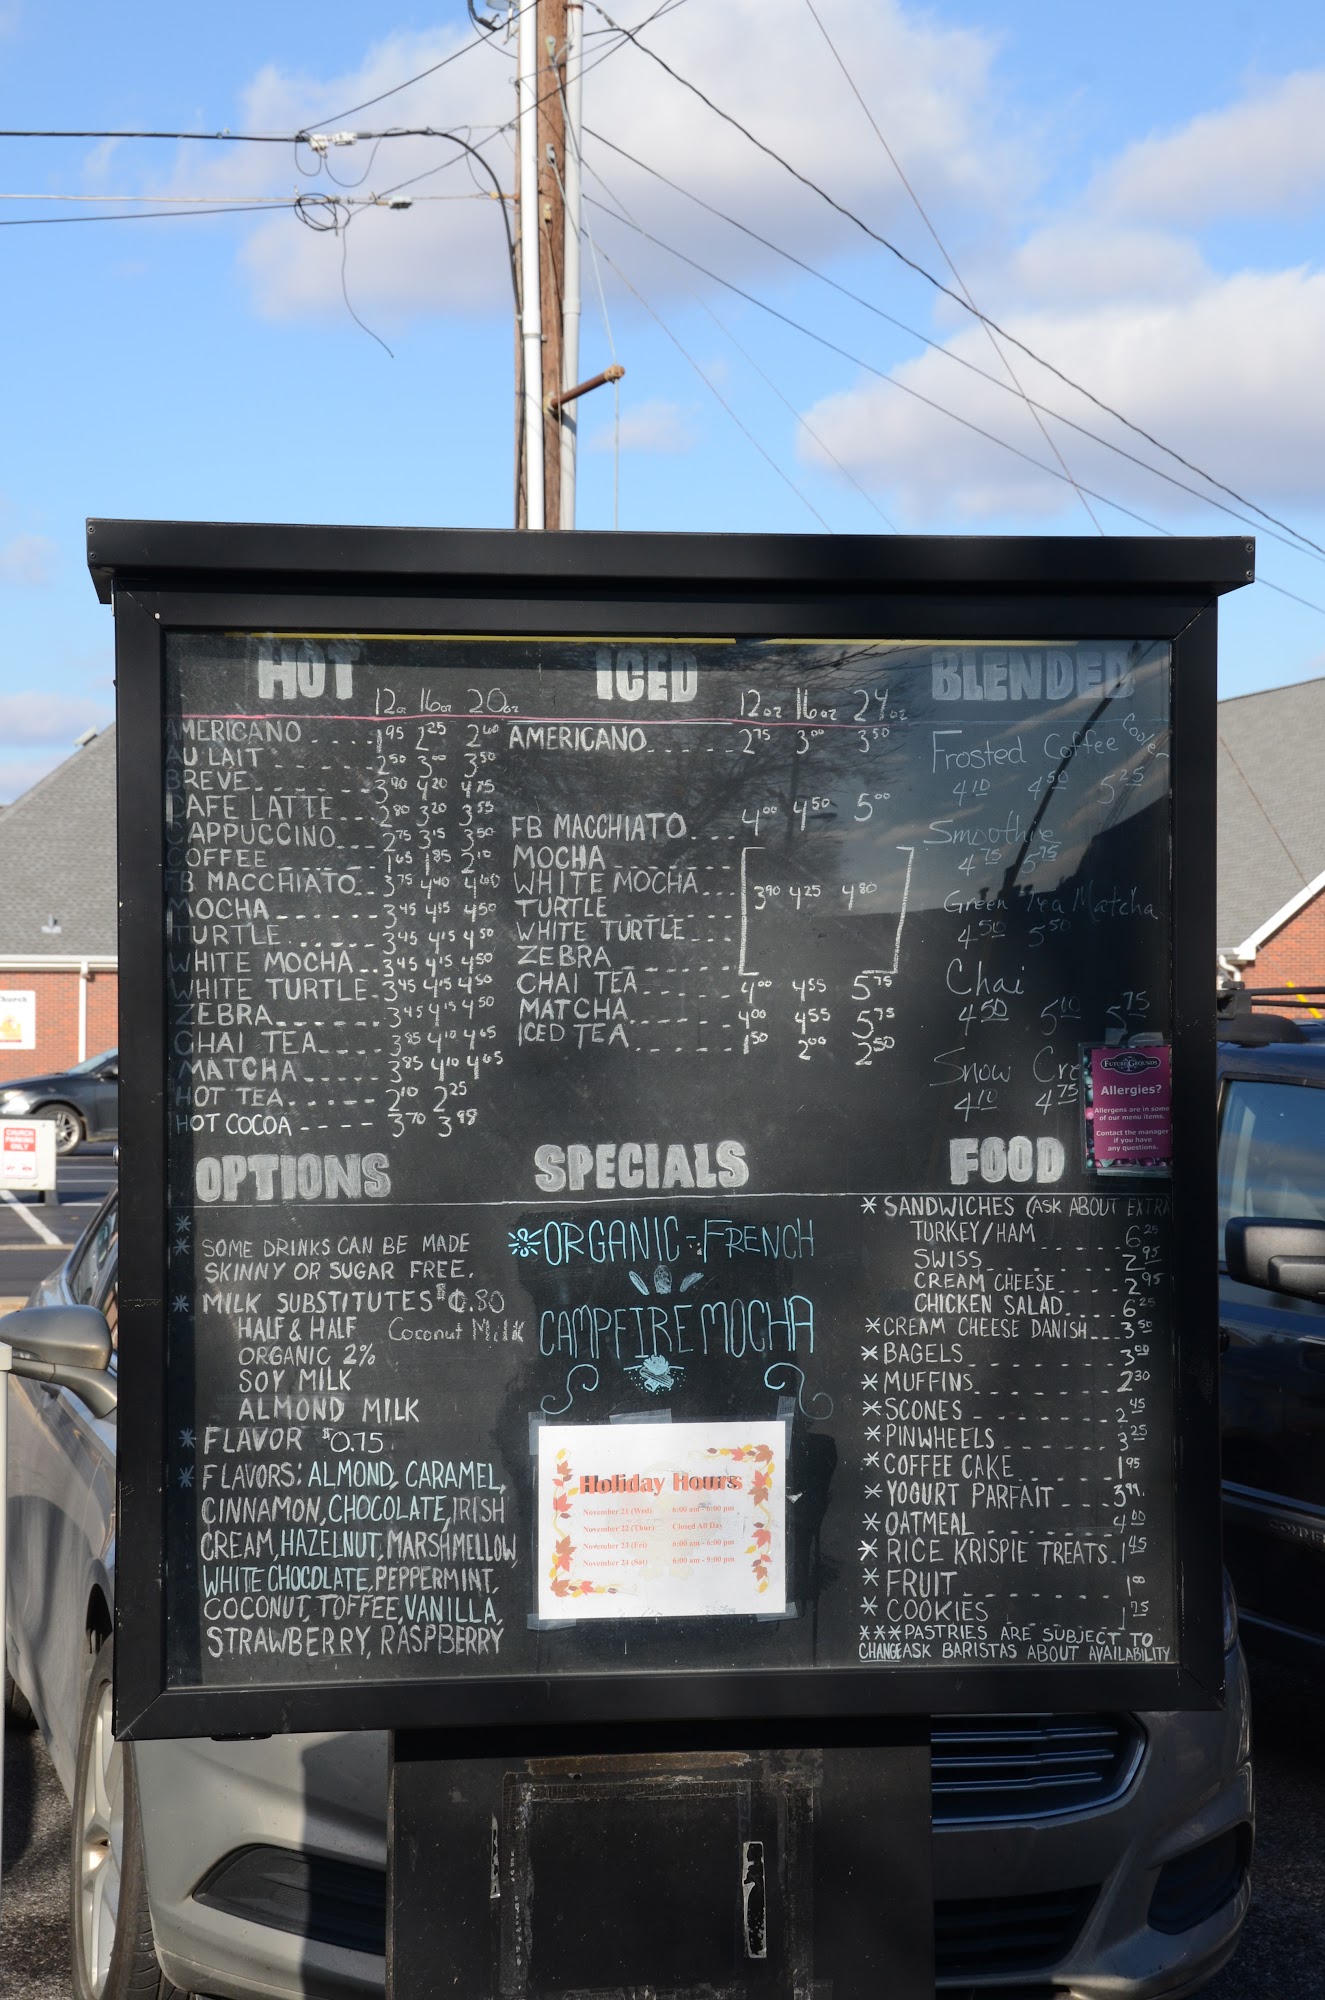 HOT
12oz 16oz 20oz
AMERICANO .... 1.95 2.25 2.60
AU LAIT ...... 2.50 3.00 3.50
BREVE....... 3.90 4.20 4.75
CAFE LATTE... 2.80 3.20 3.55
CAPPUCCINO.... 2.75 3.15 3.50
COFFEE ...... 1.65 1.85 2.10
FB MACCHIATO.. 3.75 4.40 4.60
MOCHA ------ 3.45 4.15 4.50
TURTLE...... 3.45 4.15 4.50
WHITE MOCHA.. 3.45 4.15 4.50
WHITE TURTLE- 3.45 4.15 4.50
ZEBRA....... 3.45 4.15 4.50
CHAI TEA.... 3.85 4.10 4.65
MATCHA ..... 3.85 4.10 4.65
HOT TEA ..... 2.10 2.25
HOT COCOA ---- 3.70 3.98
ICED
12oz 16oz 24oz
AMERICANO..... 2.75 3.00 3.50
FB MACCHIATO... 4.00 4.50 5.00
MOCHA
WHITE MOCHA... 3.90 4.25 4.80
TURTLE
WHITE TURTLE...
ZEBRA
CHAI TEA.... 4.00 4.55 5.75
MATCHA..... 4.00 4.55 5.75
ICED TEA..... 1.50 2.00 2.50
BLENDED
Frosted Coffee
4.10 4.50 5.25
Smoothie
4.75 5.75
Green Tea Matcha
4.50 5.50
Chai
4.50 5.10 5.75
Snow
4.10 4.75
FUTURE GROUNDS
Allergies?
Allergens are in some
of our menu items.
Contact the manager
if you have
any questions.
OPTIONS
*
* SOME DRINKS CAN BE MADE
SKINNY OR SUGAR FREE.
* MILK SUBSTITUTES $0.80
HALF & HALF Coconut Milk
ORGANIC 2%
SOY MILK
ALMOND MILK
* FLAVOR $0.75
* FLAVORS: ALMOND, CARAMEL,
CINNAMON, CHOCOLATE, IRISH
CREAM, HAZELNUT, MARSHMELLOW,
WHITE CHOCOLATE, PEPPERMINT,
COCONUT, TOFFEE, VANILLA,
STRAWBERRY, RASPBERRY
SPECIALS
*ORGANIC - FRENCH
CAMPFIRE MOCHA
Holiday Hours
November 21 (Wed) 6:00 am - 6:00 pm
November 22 (Thur) Closed All Day
November 23 (Fri) 6:00 am - 6:00 pm
November 24 (Sat) 6:00 am - 9:00 pm
FOOD
* SANDWICHES (ASK ABOUT EXTRA
TURKEY/HAM ..... 6.25
SWISS ...... 2.95
CREAM CHEESE.... 2.95
CHICKEN SALAD.... 6.25
*CREAM CHEESE DANISH... 3.50
* BAGELS ........ 3.00
* MUFFINS........ 2.30
* SCONES ........ 2.45
*PINWHEELS....... 3.25
* COFFEE CAKE..... 1.95
*YOGURT PARFAIT ... 3.99
* OATMEAL ....... 4.00
* RICE KRISPIE TREATS. 1.45
* FRUIT ....... 1.00
* COOKIES 1.75
***PASTRIES ARE SUBJECT TO
CHANGE ASK BARISTAS ABOUT AVAILABILITY
Church
CHURCH
PARKING
ONLY